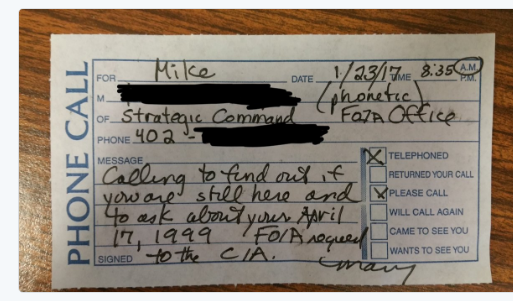 PHONE CALL
FOR Mike DATE 1/23/17 TIME 8:35 A.M. P.M.
M (phonetic)
OF Strategic Command FOIA Office
PHONE 402 -
MESSAGE
Calling to find out if
you are still here and
to ask about your April
17, 1999 FOIA request
to the CIA.
SIGNED Mary
TELEPHONED
RETURNED YOUR CALL
PLEASE CALL
WILL CALL AGAIN
CAME TO SEE YOU
WANTS TO SEE YOU